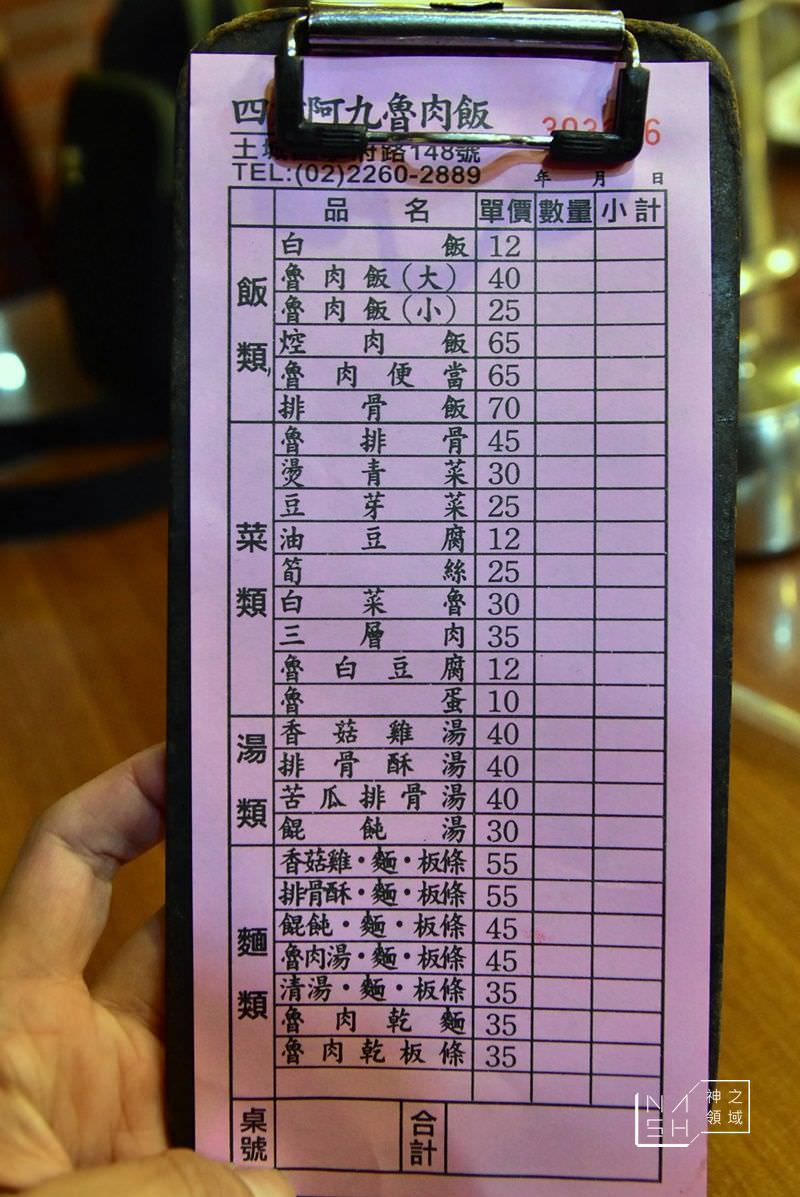 四 阿九魯肉飯
土 府路148號
TEL:(02)2260-2889
年 月 日
品名 單價 數量 小計
飯類
白飯 12
魯肉飯(大) 40
魯肉飯(小) 25
焢肉飯 65
魯肉便當 65
排骨飯 70
菜類
魯排骨 45
燙青菜 30
豆芽菜 25
油豆腐 12
筍絲 25
白菜魯 30
三層肉 35
魯白豆腐 12
魯蛋 10
湯類
香菇雞湯 40
排骨酥湯 40
苦瓜排骨湯 40
餛飩湯 30
麵類
香菇雞·麵·板條 55
排骨酥·麵·板條 55
餛飩·麵·板條 45
魯肉湯·麵·板條 45
清湯·麵·板條 35
魯肉乾麵 35
魯肉乾板條 35
桌號 合計
NASH 神之領域